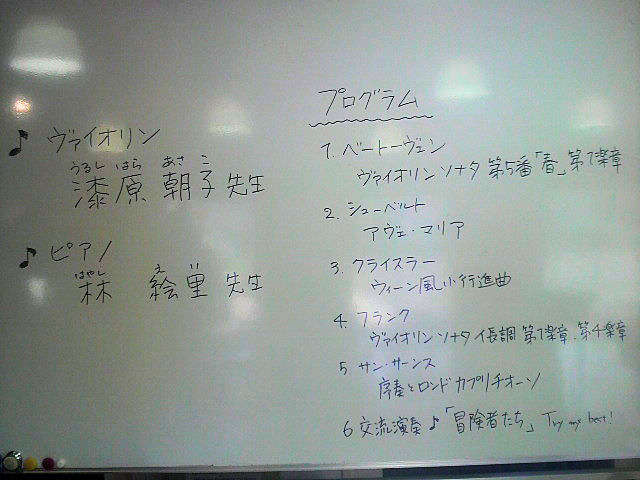 ♪ ヴァイオリン
うるし はら あさ こ
漆原 朝子 先生
♪ ピアノ
はやし え り
林 絵里 先生
プログラム
1. ベートーヴェン
ヴァイオリンソナタ 第5番「春」第1楽章
2. シューベルト
アヴェ・マリア
3. クライスラー
ウィーン風小行進曲
4. フランク
ヴァイオリンソナタ イ長調 第1楽章、第4楽章
5. サン・サーンス
序奏とロンドカプリチオーソ
6 交流演奏 ♪「冒険者たち」 Try my best!